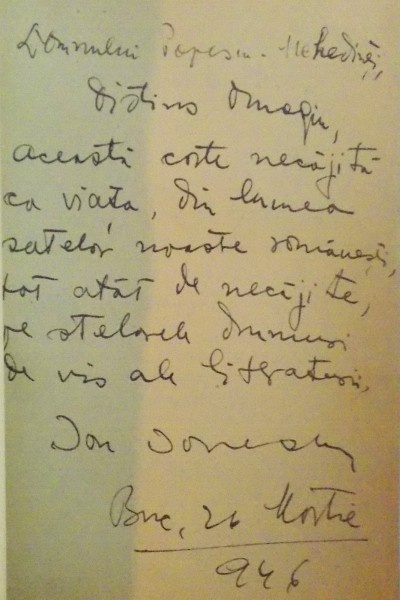 Domnului Popescu-Mehedinți,
distins omagiu,
această carte necăjită
ca viața, din lumea
satelor noastre românești,
tot atât de necăjite,
pe stelarele drumuri
de vis ale literaturii,
Ion
Buc, 26 Martie
946